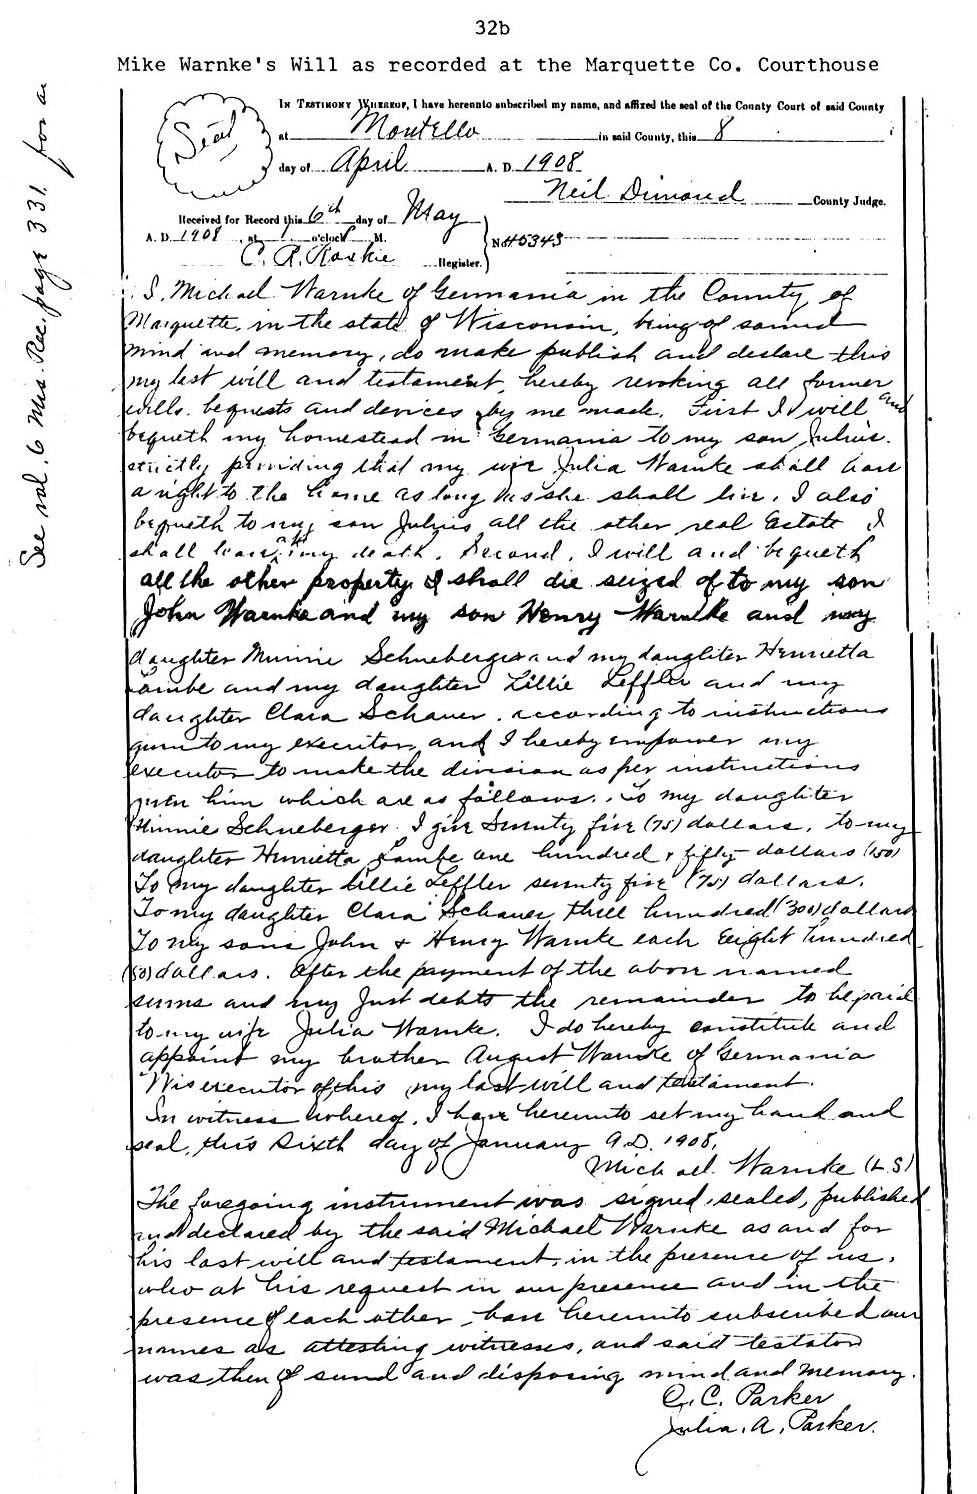 32b
Mike Warnke's Will as recorded at the Marquette Co. Courthouse
See vol. 6 Mis. Rec. page 331. for an
Seal
In Testimony Whereof, I have hereunto subscribed my name, and affixed the seal of the County Court of said County
at Montello in said County, this 8
day of April A. D. 1908
Neil Dimond County Judge.
Received for Record this 6th day of May
A. D. 1908, at 1 o'clock P M. No 45343
Register.
I, Michael Warnke of Germania in the County of
Marquette, in the state of Wisconsin, being of sound
mind and memory, do make publish and declare this
my last will and testament, hereby revoking all former
wills, bequests and devices by me made. First I will and
bequeth my homestead in Germania to my son Julius.
strictly providing that my wife Julia Warnke shall have
a right to the home as long as she shall live. I also
bequeth to my son Julius all the other real Estate I
shall leave at my death. Second. I will and bequeth
all the other property I shall die seized of to my son
John Warnke and my son Henry Warnke and my
daughter Minnie Schneberger and my daughter Henrietta
Lambe and my daughter Lillie Leffler and my
daughter Clara Schauer, according to instructions
given to my executor, and I hereby empower my
executor to make the division as per instructions
given him which are as follows. To my daughter
Minnie Schneberger I give Seventy five (75) dollars, to my
daughter Henrietta Lambe one hundred & fifty dollars (150)
To my daughter Lillie Leffler seventy five (75) dollars.
To my daughter Clara Schauer three hundred (300) dollars
To my sons John & Henry Warnke each Eeight hundred
dollars. After the payment of the above named
sums and my Just debts the remainder to be paid
to my wife Julia Warnke. I do hereby constitute and
appoint my brother August Warnke of Germania
Wis executor of this my last will and testament.
In witness whereof, I have hereunto set my hand and
seal, this Sixth day of January A.D. 1908.
Michael Warnke (L.S)
The foregoing instrument was signed, sealed, published
and declared by the said Michael Warnke as and for
his last will and testament, in the presence of us,
who at his request in our presence and in the
presence of each other, have hereunto subscribed our
names as attesting witnesses, and said testator
was then of sund and disposing mind and memory.
C. C. Parker
Julia. A. Parker.